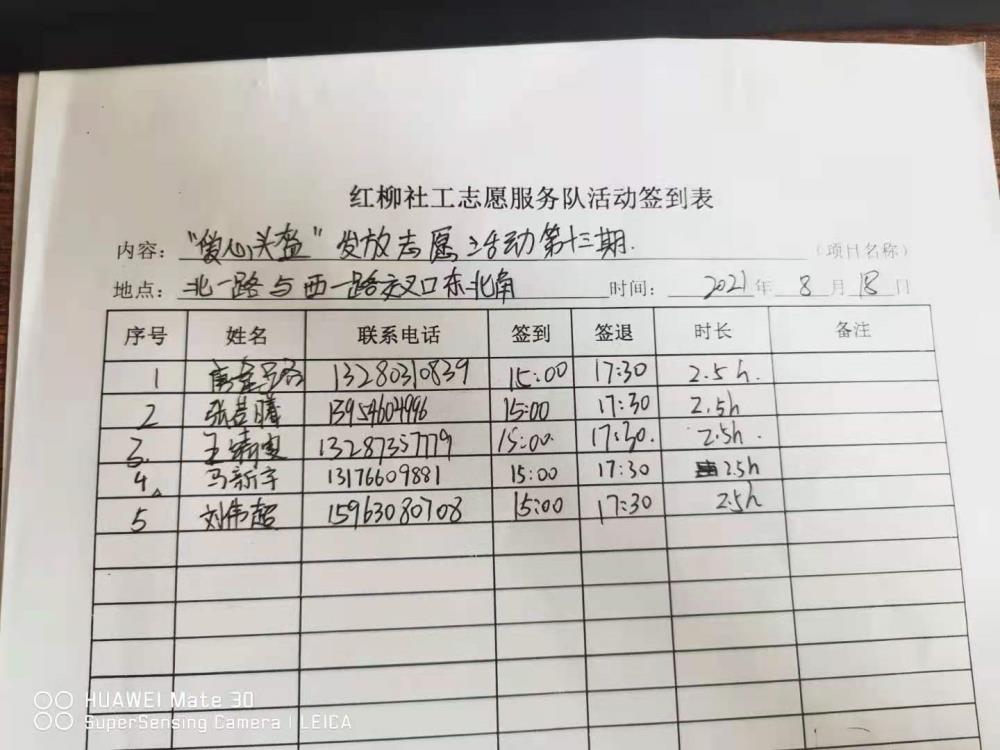 红柳社工志愿服务队活动签到表
内容：“爱心头盔”发放志愿活动第十三期.（项目名称）
地点：北一路与西一路交叉口东北角 时间：2021年8月18日
序号 姓名 联系电话 签到 签退 时长 备注
1 13280310839 15:00 17:30 2.5h.
2 13954604996 15:00 17:30 2.5h
3. 王 13287357779 15:00. 17:30. 2.5h.
4 马新宇 13176609881 15:00 17:30 2.5h
5 刘伟超 15963080708 15:00 17:30 2.5h
HUAWEI Mate 30
SuperSensing Camera | LEICA